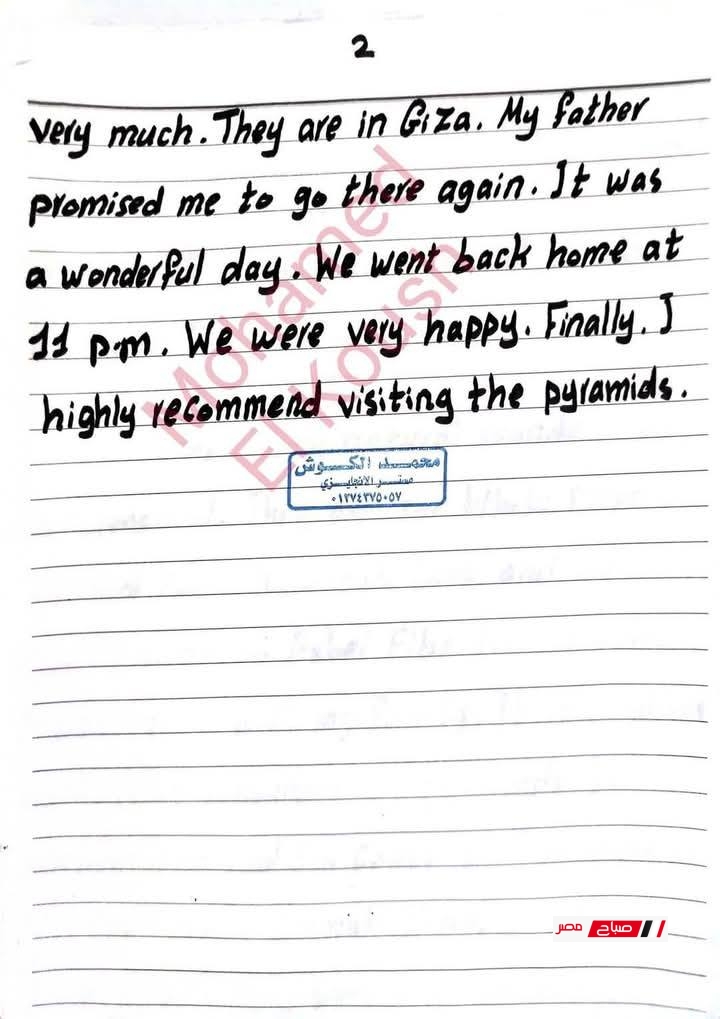 2
very much. They are in Giza. My father
promised me to go there again. It was
a wonderful day. We went back home at
11 p.m. We were very happy. Finally, I
highly recommend visiting the pyramids.
Mohamed
El Koush
محمد الكوش
مستر الانجليزي
٠١٢٧٤٣٧٥٠٥٧
صباح مصر